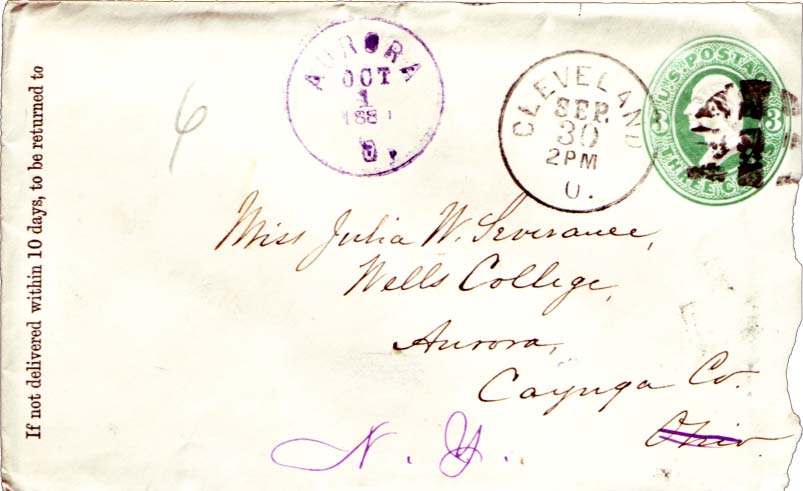 If not delivered within 10 days, to be returned to
6
AURORA
OCT
1
O.
CLEVELAND
SEP.
30
2 PM
O.
U.S. POSTAGE
3 3
THREE CENTS
Miss Julia W. Severance,
Wells College,
Aurora,
Cayuga Co.
Ohio.
N. Y.